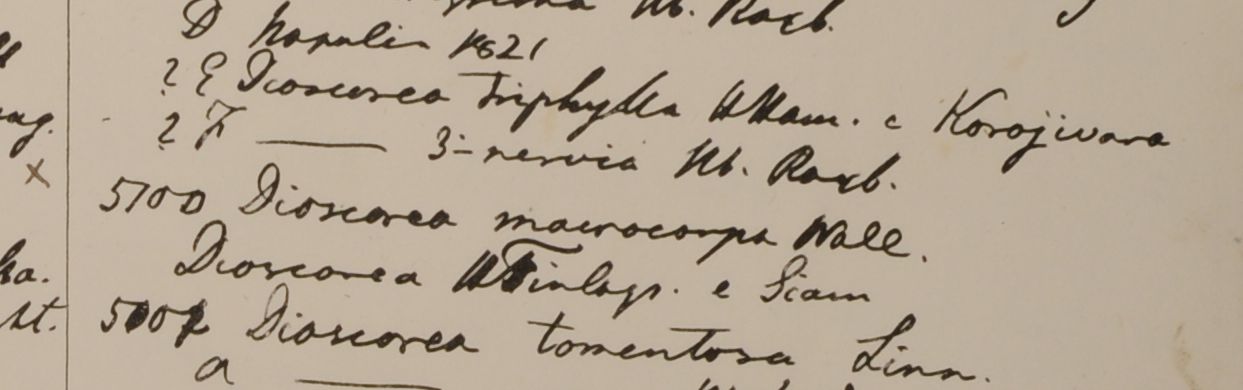 Hb. Roxb.
D Napalia 1821
? E Dioscorea Triphylla HHam. e Korojivara
? F ——— 3-nervia Hb. Roxb.
5100 Dioscorea macrocarpa Wall.
Dioscorea HFinlays. e Siam
Dioscorea tomentosa Linn.
a ———